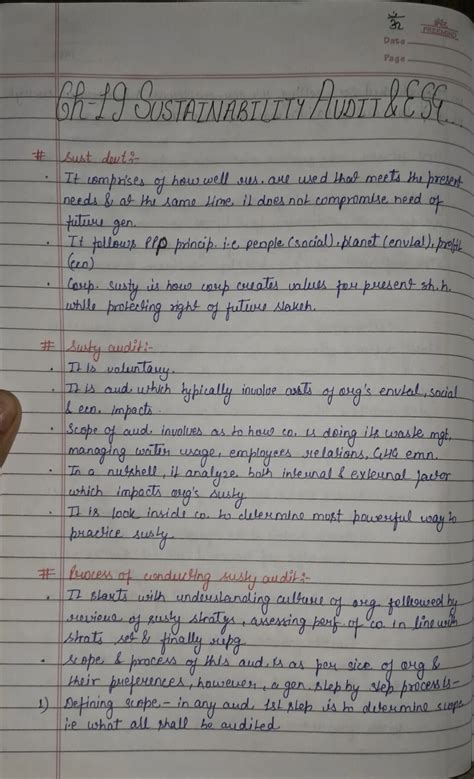 32
FREEMIND
Date
Page
Ch-19 SUSTAINABILITY AUDIT & ESG
# Sust devt:-
• It comprises of how well res. are used that meets the present
needs & at the same time it does not compromise need of
future gen.
• It follows PPP princip. i.e people (social), planet (envtal), profit
(eco)
• Corp. susty is how corp creates values for present sh.h.
while protecting right of future stakeh.
# Susty audit:-
• It is voluntary.
• It is aud which typically involve assts of org's envtal, social
& eco. impacts.
• Scope of aud. involves as to how co. is doing its waste mgt,
managing water usage, employees relations, GHG emn.
• In a nutshell, it analyze both internal & external factor
which impacts org's susty
• It is look inside co. to determine most powerful way to
practice susty
# Process of conducting susty audit:-
• It starts with understanding culture of org followed by
review of susty stratgs, assessing perf. of co. in line with
strats set & finally repg
• Scope & process of this aud. is as per size of org &
their preferences, however, a gen. step by step process is-
1) Defining scope- in any aud 1st step is to determine scope
i.e what all shall be audited